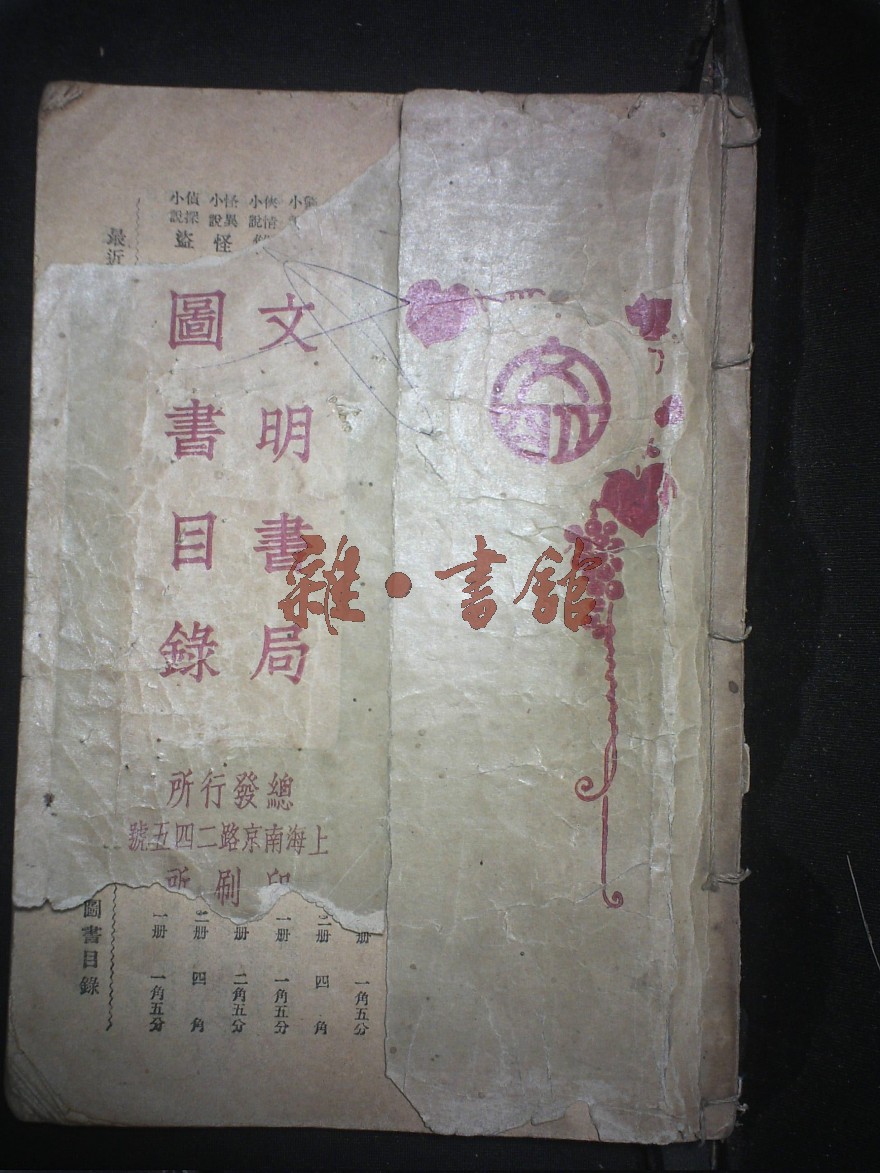 文明書局
圖書目錄
總發行所
上海南京路二四五號
印刷所
雜·書館
小說
俠情小說
怪異小說 怪
偵探小說 盜
最近
圖書目錄
册 一角五分
二册 四角
一册 一角五分
册 二角五分
二册 四角
一册 一角五分